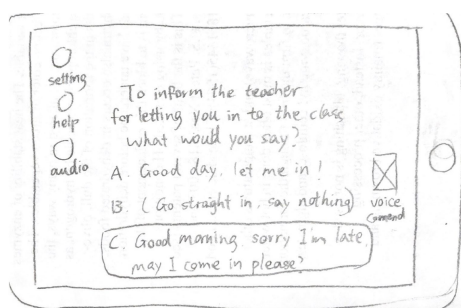 setting
help
audio
To inform the teacher
for letting you in to the class
what would you say?
A. Good day, let me in!
B. (Go straight in, say nothing)
C. Good morning, sorry I'm late,
may I come in please?
voice
Comend